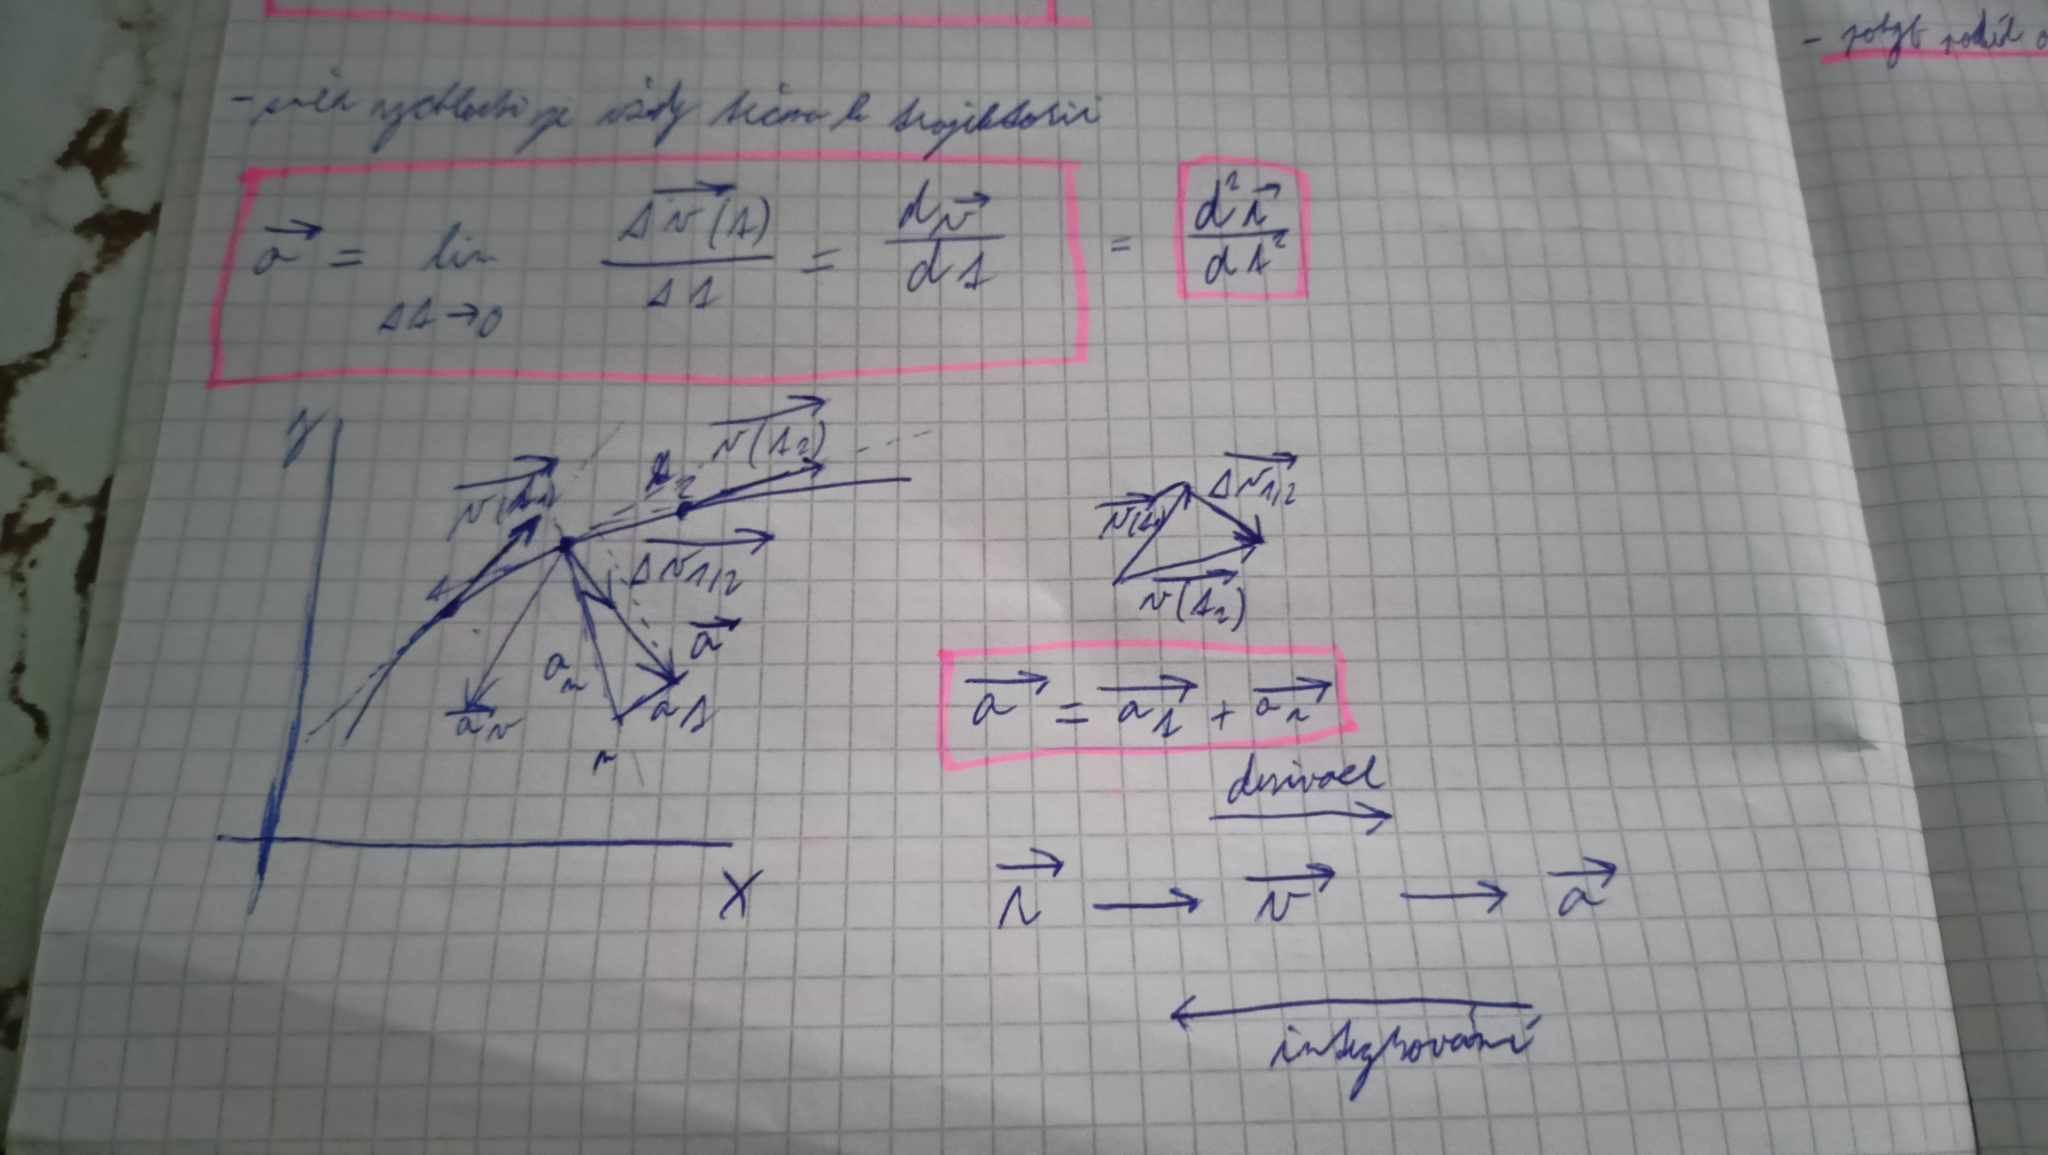 - směr rychlosti je vždy tečna k trajektorii
a⃗ = lim Δt→0 Δv⃗(t) / Δt = dv⃗ / dt = d²r⃗ / dt²
y
v⃗(t₁)
t₂
v⃗(t₂)
Δv⃗₁,₂
a⃗
aₙ
aₜ
n
x
v⃗(t₁)
Δv⃗₁,₂
v⃗(t₂)
a⃗ = a⃗ₜ + a⃗ₙ
derivace
r⃗ → v⃗ → a⃗
integrování
- pohyb